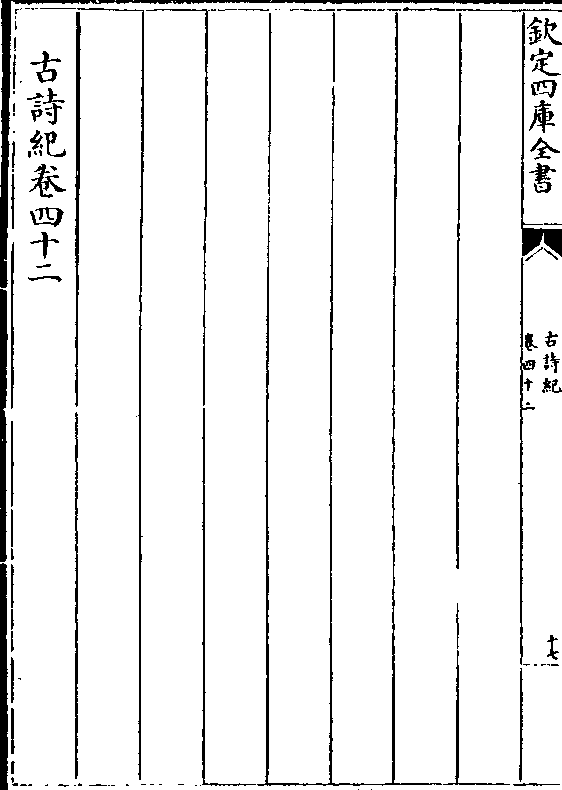 欽定四庫全書
古詩紀
卷四十二
十七
古詩紀卷四十二